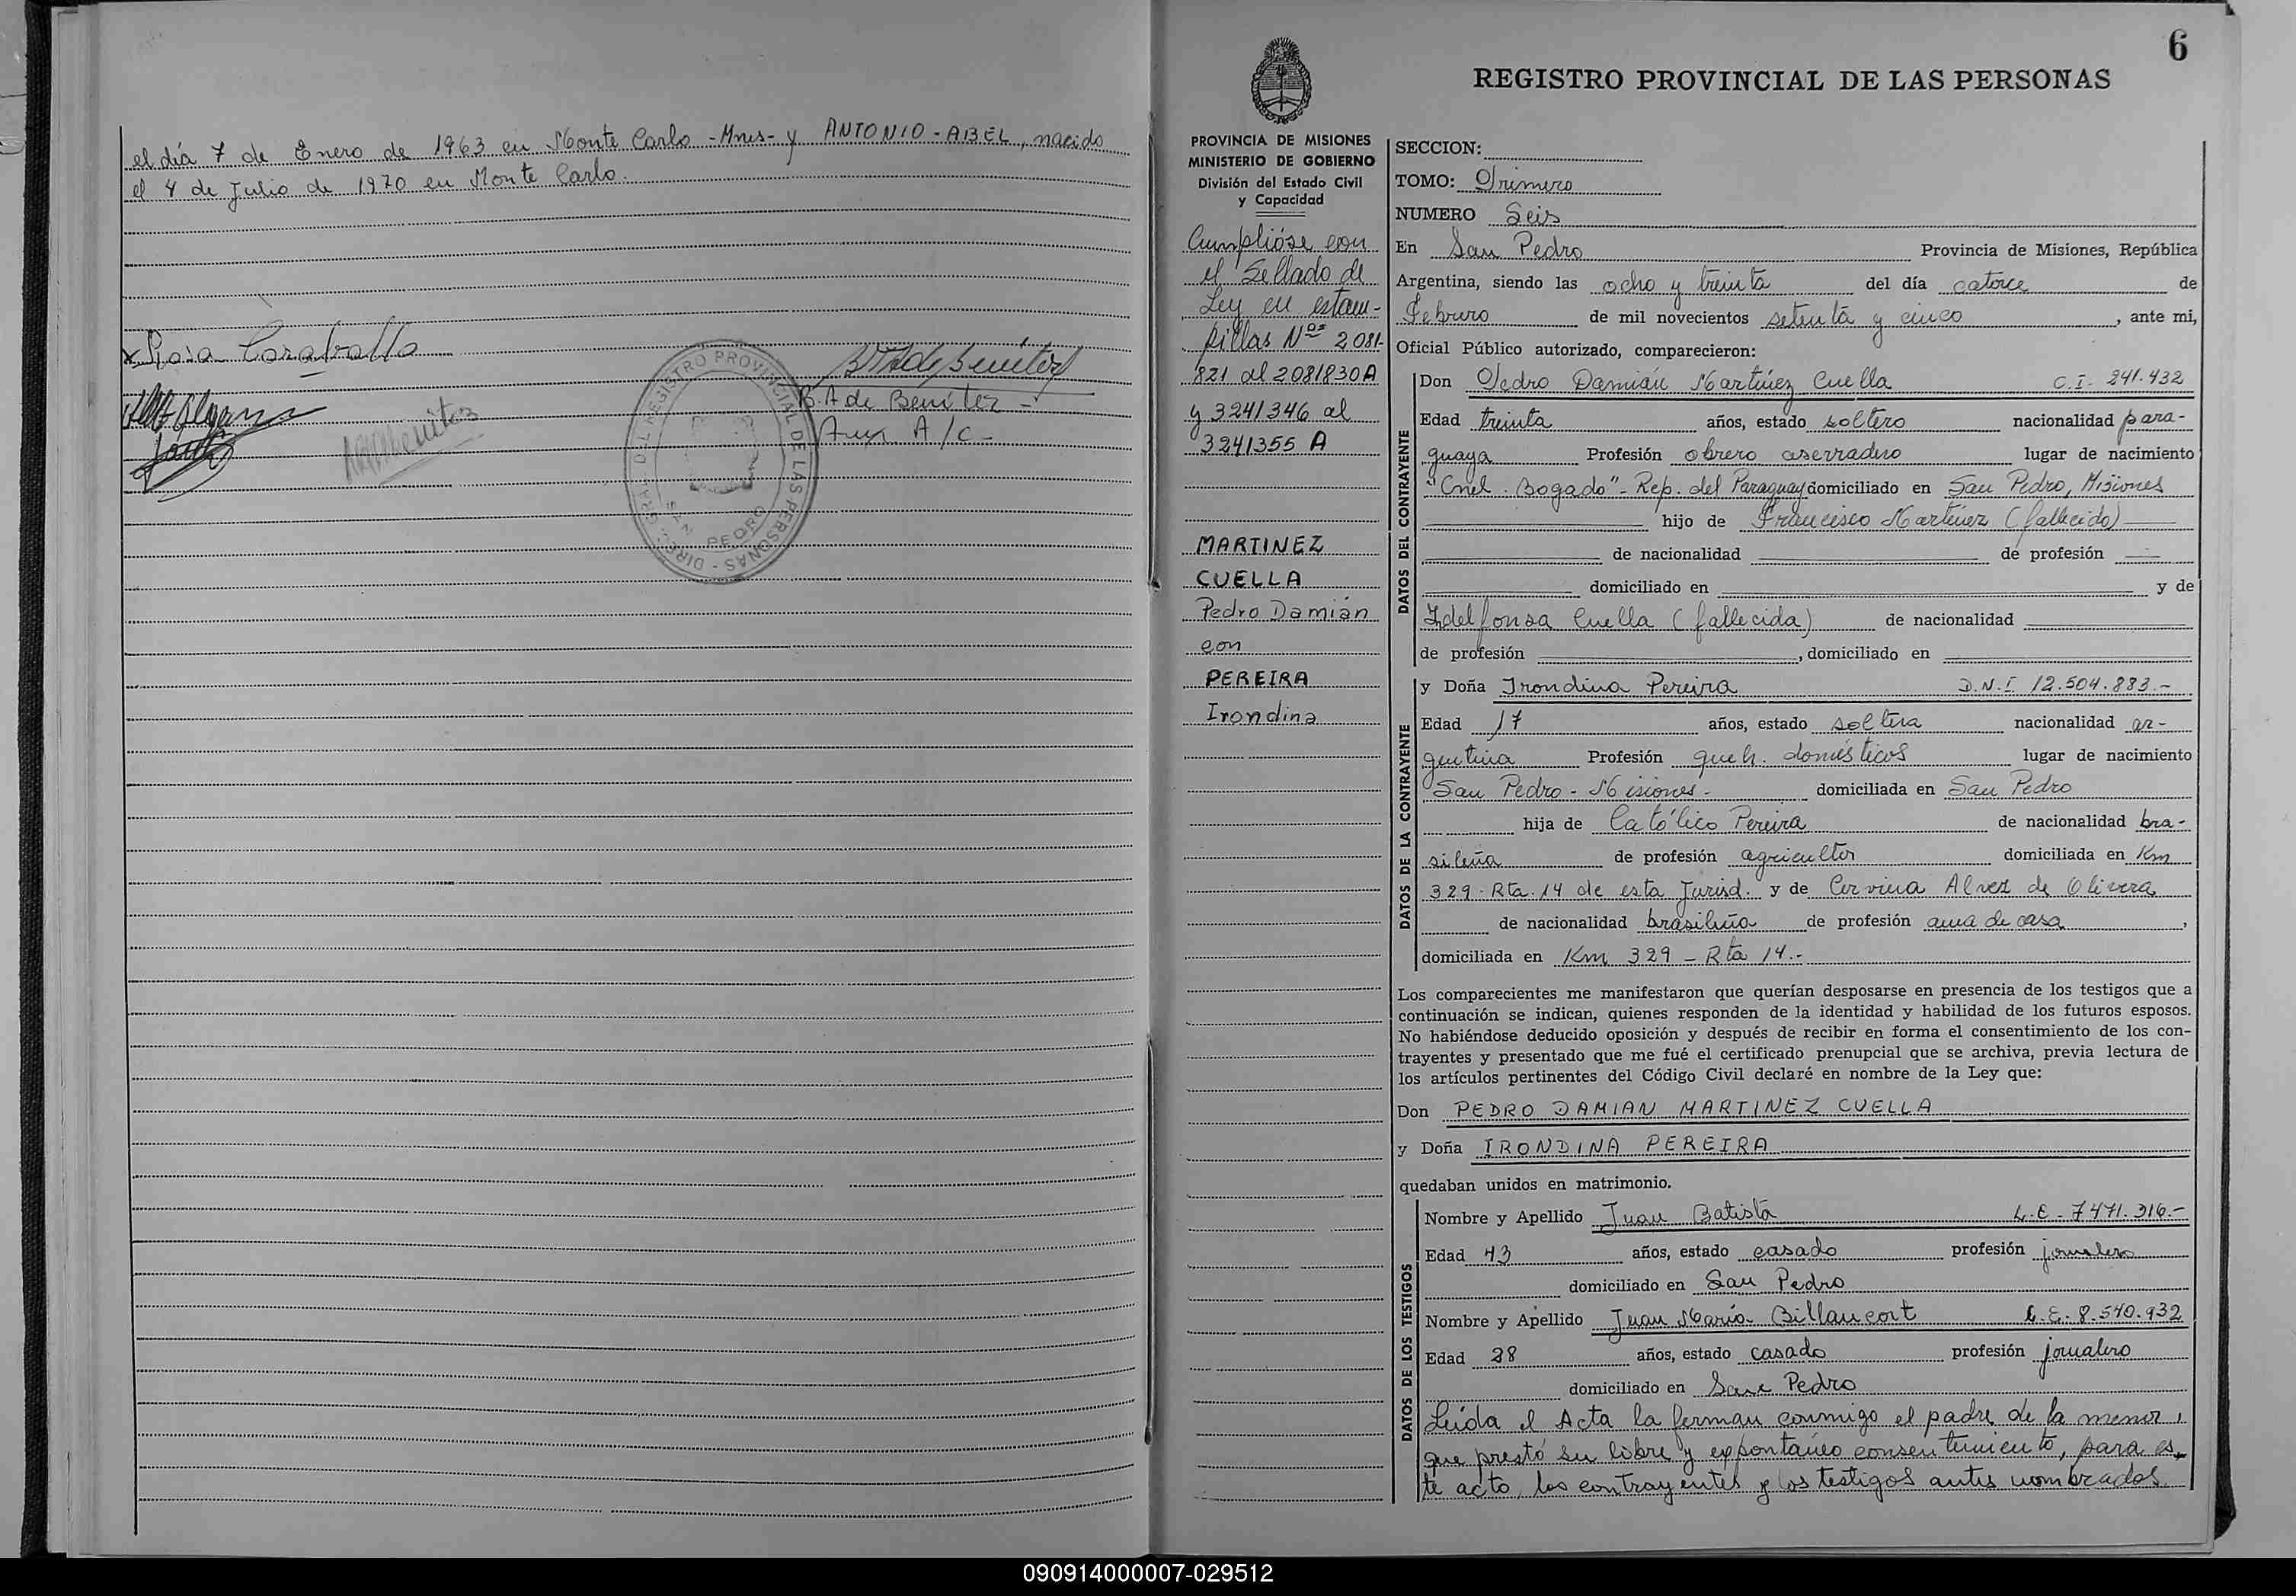 el día 7 de Enero de 1963 en Monte Carlo - Mnes- y ANTONIO - ABEL, nacido
el 4 de Julio de 1970 en Monte Carlo.
Rosa Caraballo
B. A de Benitez -
Aux A/C -
DIREC. GRAL. DEL REGISTRO PROVINCIAL DE LAS PERSONAS -
SAN PEDRO
6
REGISTRO PROVINCIAL DE LAS PERSONAS
PROVINCIA DE MISIONES
MINISTERIO DE GOBIERNO
División del Estado Civil
y Capacidad
Cumplióse con
el Sellado de
Ley en estam-
pillas Nos 2081-
821 al 2081830A
y 3241346 al
3241355 A
MARTINEZ
CUELLA
Pedro Damián
con
PEREIRA
Irondina
SECCION:
TOMO: Primero
NUMERO Seis
En San Pedro Provincia de Misiones, República
Argentina, siendo las ocho y treinta del día catorce de
Febrero de mil novecientos setenta y cinco, ante mi,
Oficial Público autorizado, comparecieron:
DATOS DEL CONTRAYENTE
Don Pedro Damián Martínez Cuella C.I. 241.432
Edad treinta años, estado soltero nacionalidad para-
guaya Profesión obrero aserradero lugar de nacimiento
"Cnel. Bogado" - Rep. del Paraguay domiciliado en San Pedro, Misiones
hijo de Francisco Martinez (fallecido)
de nacionalidad de profesión
domiciliado en y de
Idelfonsa Cuella (fallecida) de nacionalidad
de profesión , domiciliado en
DATOS DE LA CONTRAYENTE
y Doña Irondina Pereira D.N.I 12.504.883.-
Edad 17 años, estado soltera nacionalidad ar-
gentina Profesión queh. domésticos lugar de nacimiento
San Pedro - Misiones - domiciliada en San Pedro
hija de Católico Pereira de nacionalidad bra-
sileña de profesión agricultor domiciliada en Km
329 - Rta. 14 de esta Jurisd. y de Cervina Alvez de Olivera
de nacionalidad brasileña de profesión ama de casa,
domiciliada en Km 329 - Rta 14.-
Los comparecientes me manifestaron que querían desposarse en presencia de los testigos que a
continuación se indican, quienes responden de la identidad y habilidad de los futuros esposos.
No habiéndose deducido oposición y después de recibir en forma el consentimiento de los con-
trayentes y presentado que me fué el certificado prenupcial que se archiva, previa lectura de
los artículos pertinentes del Código Civil declaré en nombre de la Ley que:
Don PEDRO DAMIAN MARTINEZ CUELLA
y Doña IRONDINA PEREIRA
quedaban unidos en matrimonio.
DATOS DE LOS TESTIGOS
Nombre y Apellido Juan Batista L.E - 7471.316.-
Edad 43 años, estado casado profesión jornalero
domiciliado en San Pedro
Nombre y Apellido Juan María Billancort L.E. 8.540.932
Edad 28 años, estado casado profesión jornalero
domiciliado en San Pedro
Leída el Acta la firman conmigo el padre de la menor,
que prestó su libre y expontáneo consentimiento, para es-
te acto, los contrayentes y los testigos antes nombrados.
090914000007-029512